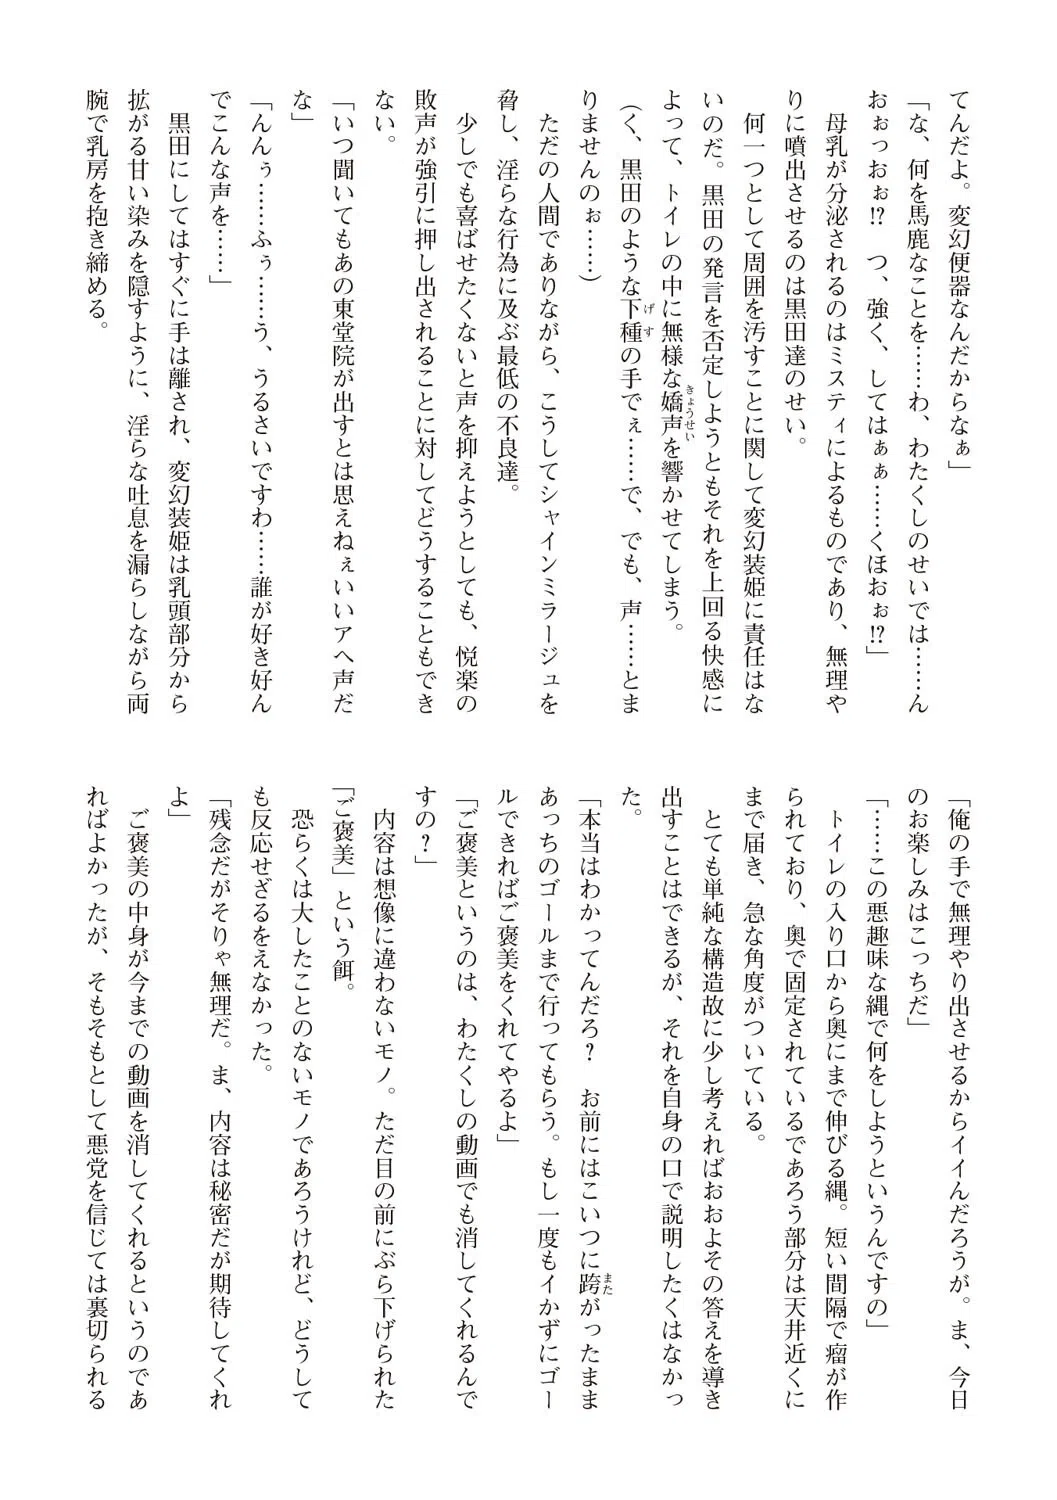 てんだよ。変幻便器なんだからなぁ」
「な、何を馬鹿なことを……わ、わたくしのせいでは……ん
おぉっおぉ!?　つ、強く、してはぁぁ……くほおぉ!?」
　母乳が分泌されるのはミスティによるものであり、無理や
りに噴出させるのは黒田達のせい。
　何一つとして周囲を汚すことに関して変幻装姫に責任はな
いのだ。黒田の発言を否定しようともそれを上回る快感に
よって、トイレの中に無様な嬌声（きょうせい）を響かせてしまう。
（く、黒田のような下種（げす）の手でぇ……で、でも、声……とま
りませんのぉ……）
　ただの人間でありながら、こうしてシャインミラージュを
脅し、淫らな行為に及ぶ最低の不良達。
　少しでも喜ばせたくないと声を抑えようとしても、悦楽の
敗声が強引に押し出されることに対してどうすることもでき
ない。
「いつ聞いてもあの東堂院が出すとは思えねぇいいアヘ声だ
な」
「んんぅ……ふぅ……う、うるさいですわ……誰が好き好ん
でこんな声を……」
　黒田にしてはすぐに手は離され、変幻装姫は乳頭部分から
拡がる甘い染みを隠すように、淫らな吐息を漏らしながら両
腕で乳房を抱き締める。
「俺の手で無理やり出させるからイイんだろうが。ま、今日
のお楽しみはこっちだ」
「……この悪趣味な縄で何をしようというんですの」
　トイレの入り口から奥にまで伸びる縄。短い間隔で瘤が作
られており、奥で固定されているであろう部分は天井近くに
まで届き、急な角度がついている。
　とても単純な構造故に少し考えればおおよその答えを導き
出すことはできるが、それを自身の口で説明したくはなかっ
た。
「本当はわかってんだろ？　お前にはこいつに跨（また）がったまま
あっちのゴールまで行ってもらう。もし一度もイかずにゴー
ルできればご褒美をくれてやるよ」
「ご褒美というのは、わたくしの動画でも消してくれるんで
すの？」
　内容は想像に違わないモノ。ただ目の前にぶら下げられた
「ご褒美」という餌。
　恐らくは大したことのないモノであろうけれど、どうして
も反応せざるをえなかった。
「残念だがそりゃ無理だ。ま、内容は秘密だが期待してくれ
よ」
　ご褒美の中身が今までの動画を消してくれるというのであ
ればよかったが、そもそもとして悪党を信じては裏切られる